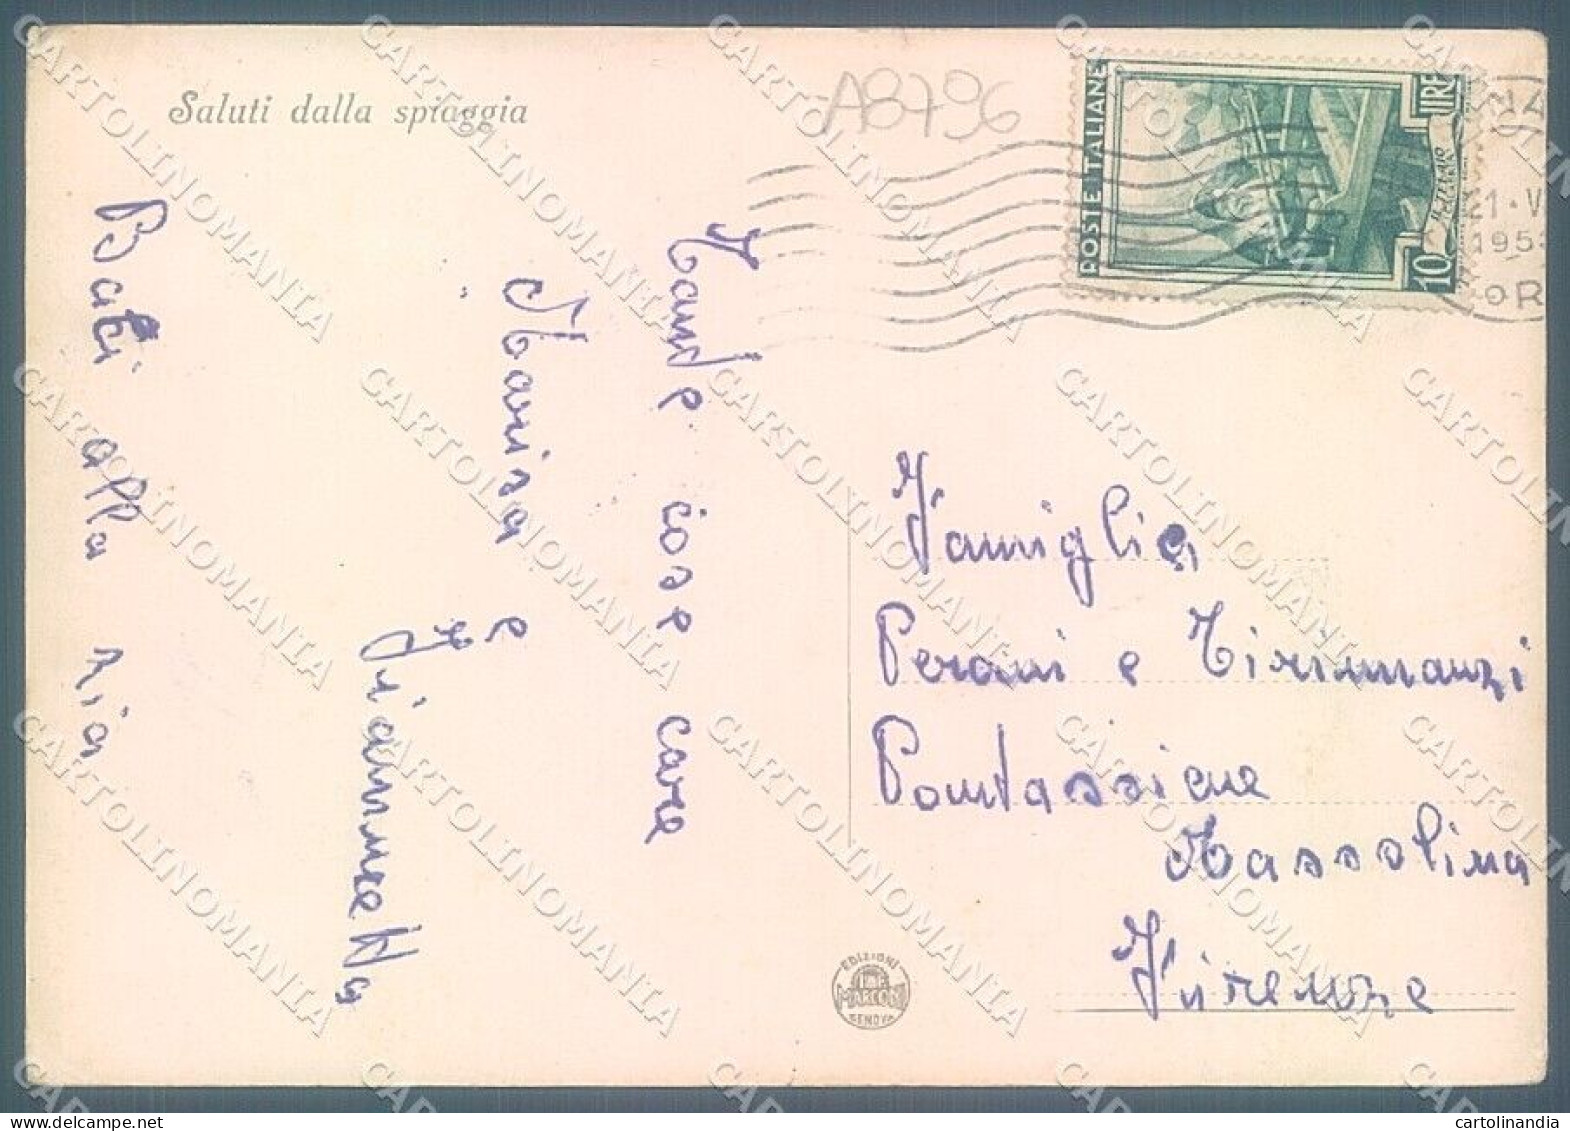 Saluti dalla spiaggia
A8796
POSTE ITALIANE
LIRE
10
21·V
195
OR
Tante cose care
Marisa
e
Giannetta
Baci alla
Famiglia
Perani e Tirimanzi
Pontassieve
Massolina
Firenze
EDIZIONI
MARCONI
GENOVA
CARTOLINOMANIA
cartolinandia